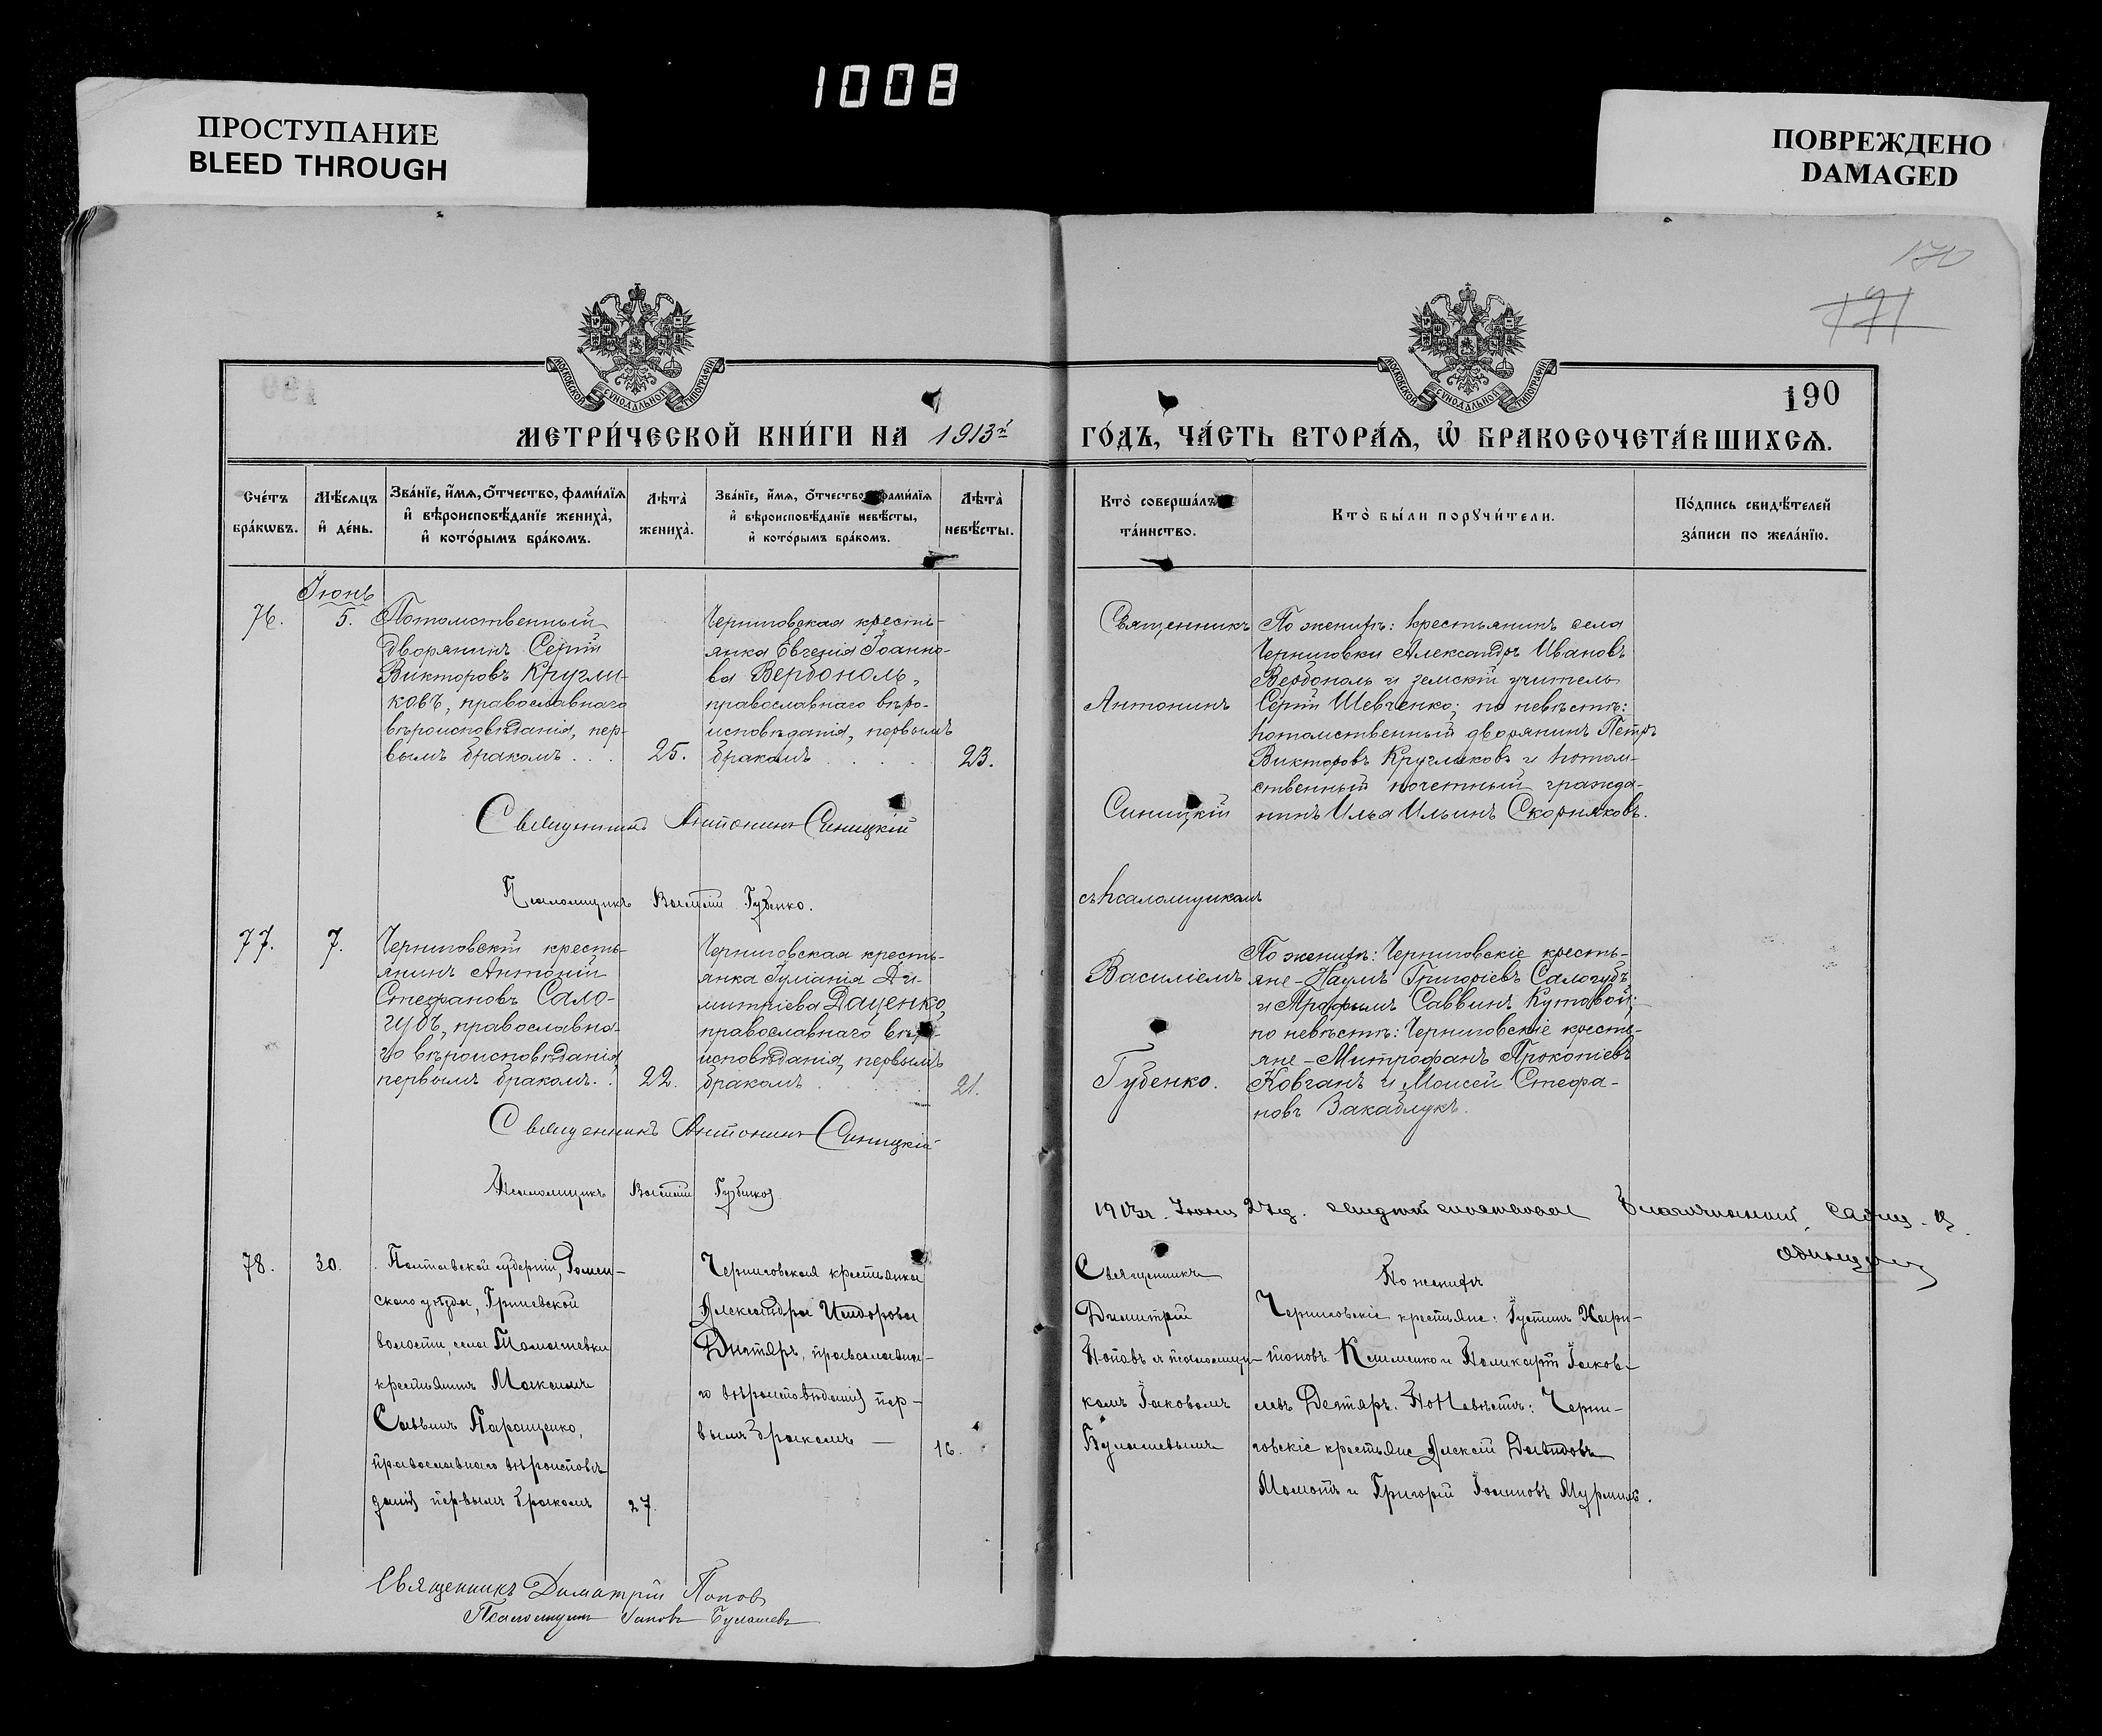 1008
ПРОСТУПАНИЕ
BLEED THROUGH
ПОВРЕЖДЕНО
DAMAGED
170
171
190
МОСКОВСКОЙ СѴНОДАЛЬНОЙ ТИПОГРАФІИ
МОСКОВСКОЙ СѴНОДАЛЬНОЙ ТИПОГРАФІИ
МЕТРИ́ЧЕСКОЙ КНИ́ГИ НА 1913й
ГО́ДЪ, ЧА́СТЬ ВТОРА́Ѧ, Ѡ҆ БРАКОСОЧЕТА́ВШИХСѦ.
Сче́тъ
бра́кѡвъ.
Мѣ́сѧцъ
и҆ де́нь.
Зва́нїе, и҆́мѧ, ѻ҆́тчество, фами́лїѧ
и҆ вѣроисповѣ́данїе жениха̀,
и҆ кото́рымъ бра́комъ.
Лѣта̀
жениха̀.
Зва́нїе, и҆́мѧ, ѻ҆́тчество, фами́лїѧ
и҆ вѣроисповѣ́данїе невѣ́сты,
и҆ кото́рымъ бра́комъ.
Лѣта̀
невѣ́сты.
Кто̀ соверша́лъ
та́инство.
Кто̀ бы́ли порꙋчи́тели.
По́дпись свидѣ́телей
за́писи по жела́нїю.
Іюнь
76.
5.
Потомственный
дворянинъ Сергій
Викторовъ Кругли-
ковъ, православнаго
вѣроисповѣданія, пер-
вымъ бракомъ . . .
25.
Черниговская кресть-
янка Евгенія Іоанно-
ва Вербоноль,
православнаго вѣро-
исповѣданія, первымъ
бракомъ . . . .
23.
Священникъ
Антонинъ
Синицкій
съ псаломщикомъ
Василіемъ
Губенко.
По женихѣ: крестьянинъ села
Черниговки Александръ Ивановъ
Вербоноль и земскій учитель
Сергій Шевченко; по невѣстѣ:
потомственный дворянинъ Петръ
Викторовъ Кругликовъ и потом-
ственный почетный гражда-
нинъ Илья Ильинъ Скорняковъ.
Священникъ Антонинъ Синицкій
Псаломщикъ Василій Губенко.
77.
7.
Черниговскій кресть-
янинъ Антоній
Стефановъ Сало-
губъ, православна-
го вѣроисповѣданія,
первымъ бракомъ. .
22.
Черниговская кресть-
янка Іуліанія Ди-
митріева Даценко,
православнаго вѣро-
исповѣданія, первымъ
бракомъ . . . .
21.
По женихѣ: Черниговскіе кресть-
яне - Наумъ Григоріевъ Салогубъ
и Трофимъ Саввинъ Кутовой;
по невѣстѣ: Черниговскіе кресть-
яне - Митрофанъ Прокопіевъ
Ковганъ и Моисей Стефа-
новъ Закаблукъ.
Священникъ Антонинъ Синицкій
Псаломщикъ Василій Губенко
1913г. Іюня
Благочинный,
78.
30.
Полтавской губерніи, Ромен-
скаго уѣзда,
волости, села Томашевки
крестьянинъ Максимъ
Саввинъ Паращенко,
православнаго вѣроисповѣ
данія первымъ бракомъ
27.
Черниговская крестьянка
Александра Исидорова
Дегтярь, православна-
го вѣроисповѣданія пер-
вымъ бракомъ —
16.
Священникъ
Димитрій
Поповъ и псаломщи-
комъ Іаковомъ
Булашевымъ
По женихѣ
Черниговскіе крестьяне: Іустинъ Хари-
тоновъ Клименко и Поликарпъ Іаков-
левъ Дегтярь. По Невѣстѣ: Черни-
говскіе крестьяне Алексій Давидовъ
Момотъ и Григорій Іоанновъ
Священникъ Димитрій Попов
Псаломщикъ Іаковъ Булашевъ